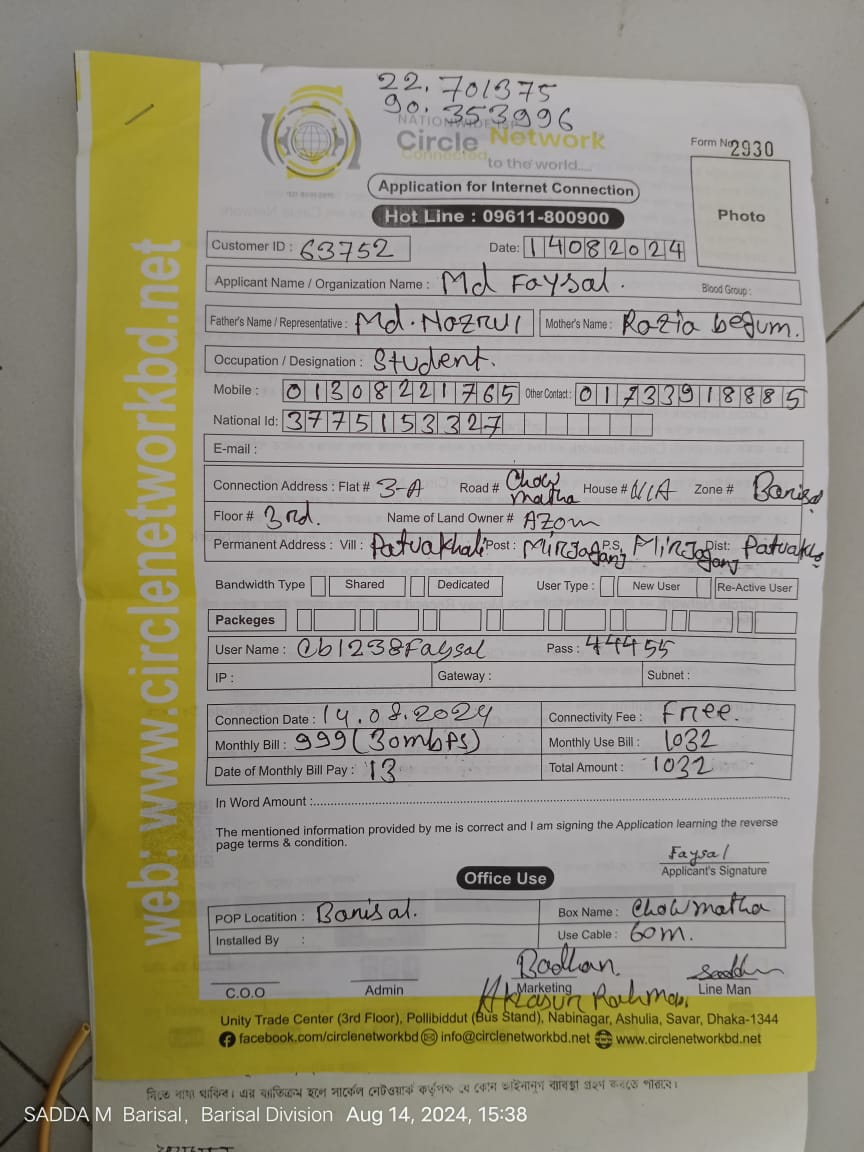 22.701375
90.353996
NATIONWIDE ISP
Circle Network
Connected to the world....
Form No 2930
Application for Internet Connection
Photo
Hot Line : 09611-800900
Customer ID : 63752 Date: 14082024
Applicant Name / Organization Name : Md Faysal. Blood Group :
Father's Name / Representative : Md. Nazrul Mother's Name : Razia begum.
Occupation / Designation : Student.
Mobile : 01308221765 Other Contact : 01733918885
National Id: 3775153327
E-mail :
Connection Address : Flat # 3-A Road # Chow matha House # N/A Zone # Barisal
Floor # 3rd. Name of Land Owner # AZom
Permanent Address : Vill : Patuakhali Post : Mirjaganj P.S, Mirjaganj Dist: Patuakh
Bandwidth Type Shared Dedicated User Type : New User Re-Active User
Packeges
User Name : @b1238Faysal Pass : 44455
IP : Gateway : Subnet :
Connection Date : 14.08.2024 Connectivity Fee : Free.
Monthly Bill : 999(30mbps) Monthly Use Bill : 1032
Date of Monthly Bill Pay : 13 Total Amount : 1032
In Word Amount :
The mentioned information provided by me is correct and I am signing the Application learning the reverse
page terms & condition.
Faysal
Applicant's Signature
Office Use
POP Locatition : Barisal. Box Name : Chowmatha
Installed By : Use Cable : 60m.
Badhan.
C.O.O Admin Marketing Line Man
Rahman
Unity Trade Center (3rd Floor), Pollibiddut (Bus Stand), Nabinagar, Ashulia, Savar, Dhaka-1344
facebook.com/circlenetworkbd info@circlenetworkbd.net www.circlenetworkbd.net
web: www.circlenetworkbd.net
দিতে বাধ্য থাকিব। এর ব্যতিক্রম হলে সার্কেল নেটওয়ার্ক কর্তৃপক্ষ যে কোন আইনানুগ ব্যবস্থা গ্রহণ করতে পারবে।
SADDA M Barisal, Barisal Division Aug 14, 2024, 15:38